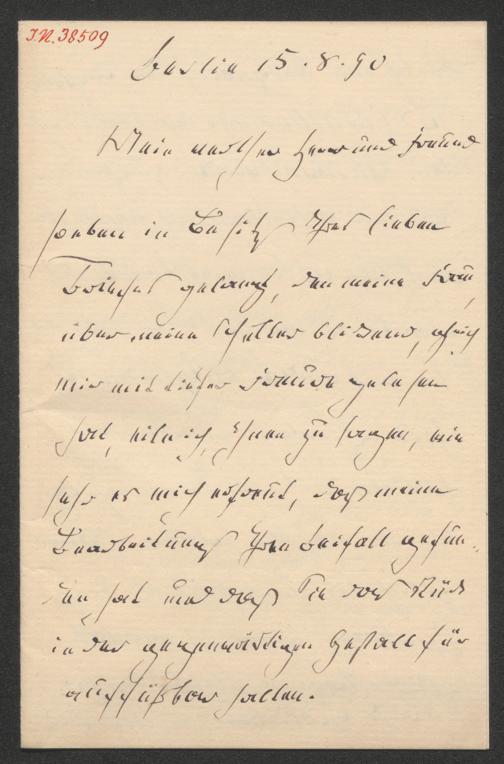 I.N. 38509
Berlin 15.8.90
Mein werther Herr und Freund
soeben in Besitz Ihres lieben
Briefes gelangt, den meine Frau,
über meine Schulter blickend, gleich
mir mit dieser Freude gelesen
hat, eile ich, Ihnen zu sagen, wie
sehr es mich erfreut, daß meine
Bearbeitung Ihren Beifall gefun-
den hat und daß Sie das Stück
in der gegenwärtigen Gestalt für
aufführbar halten.